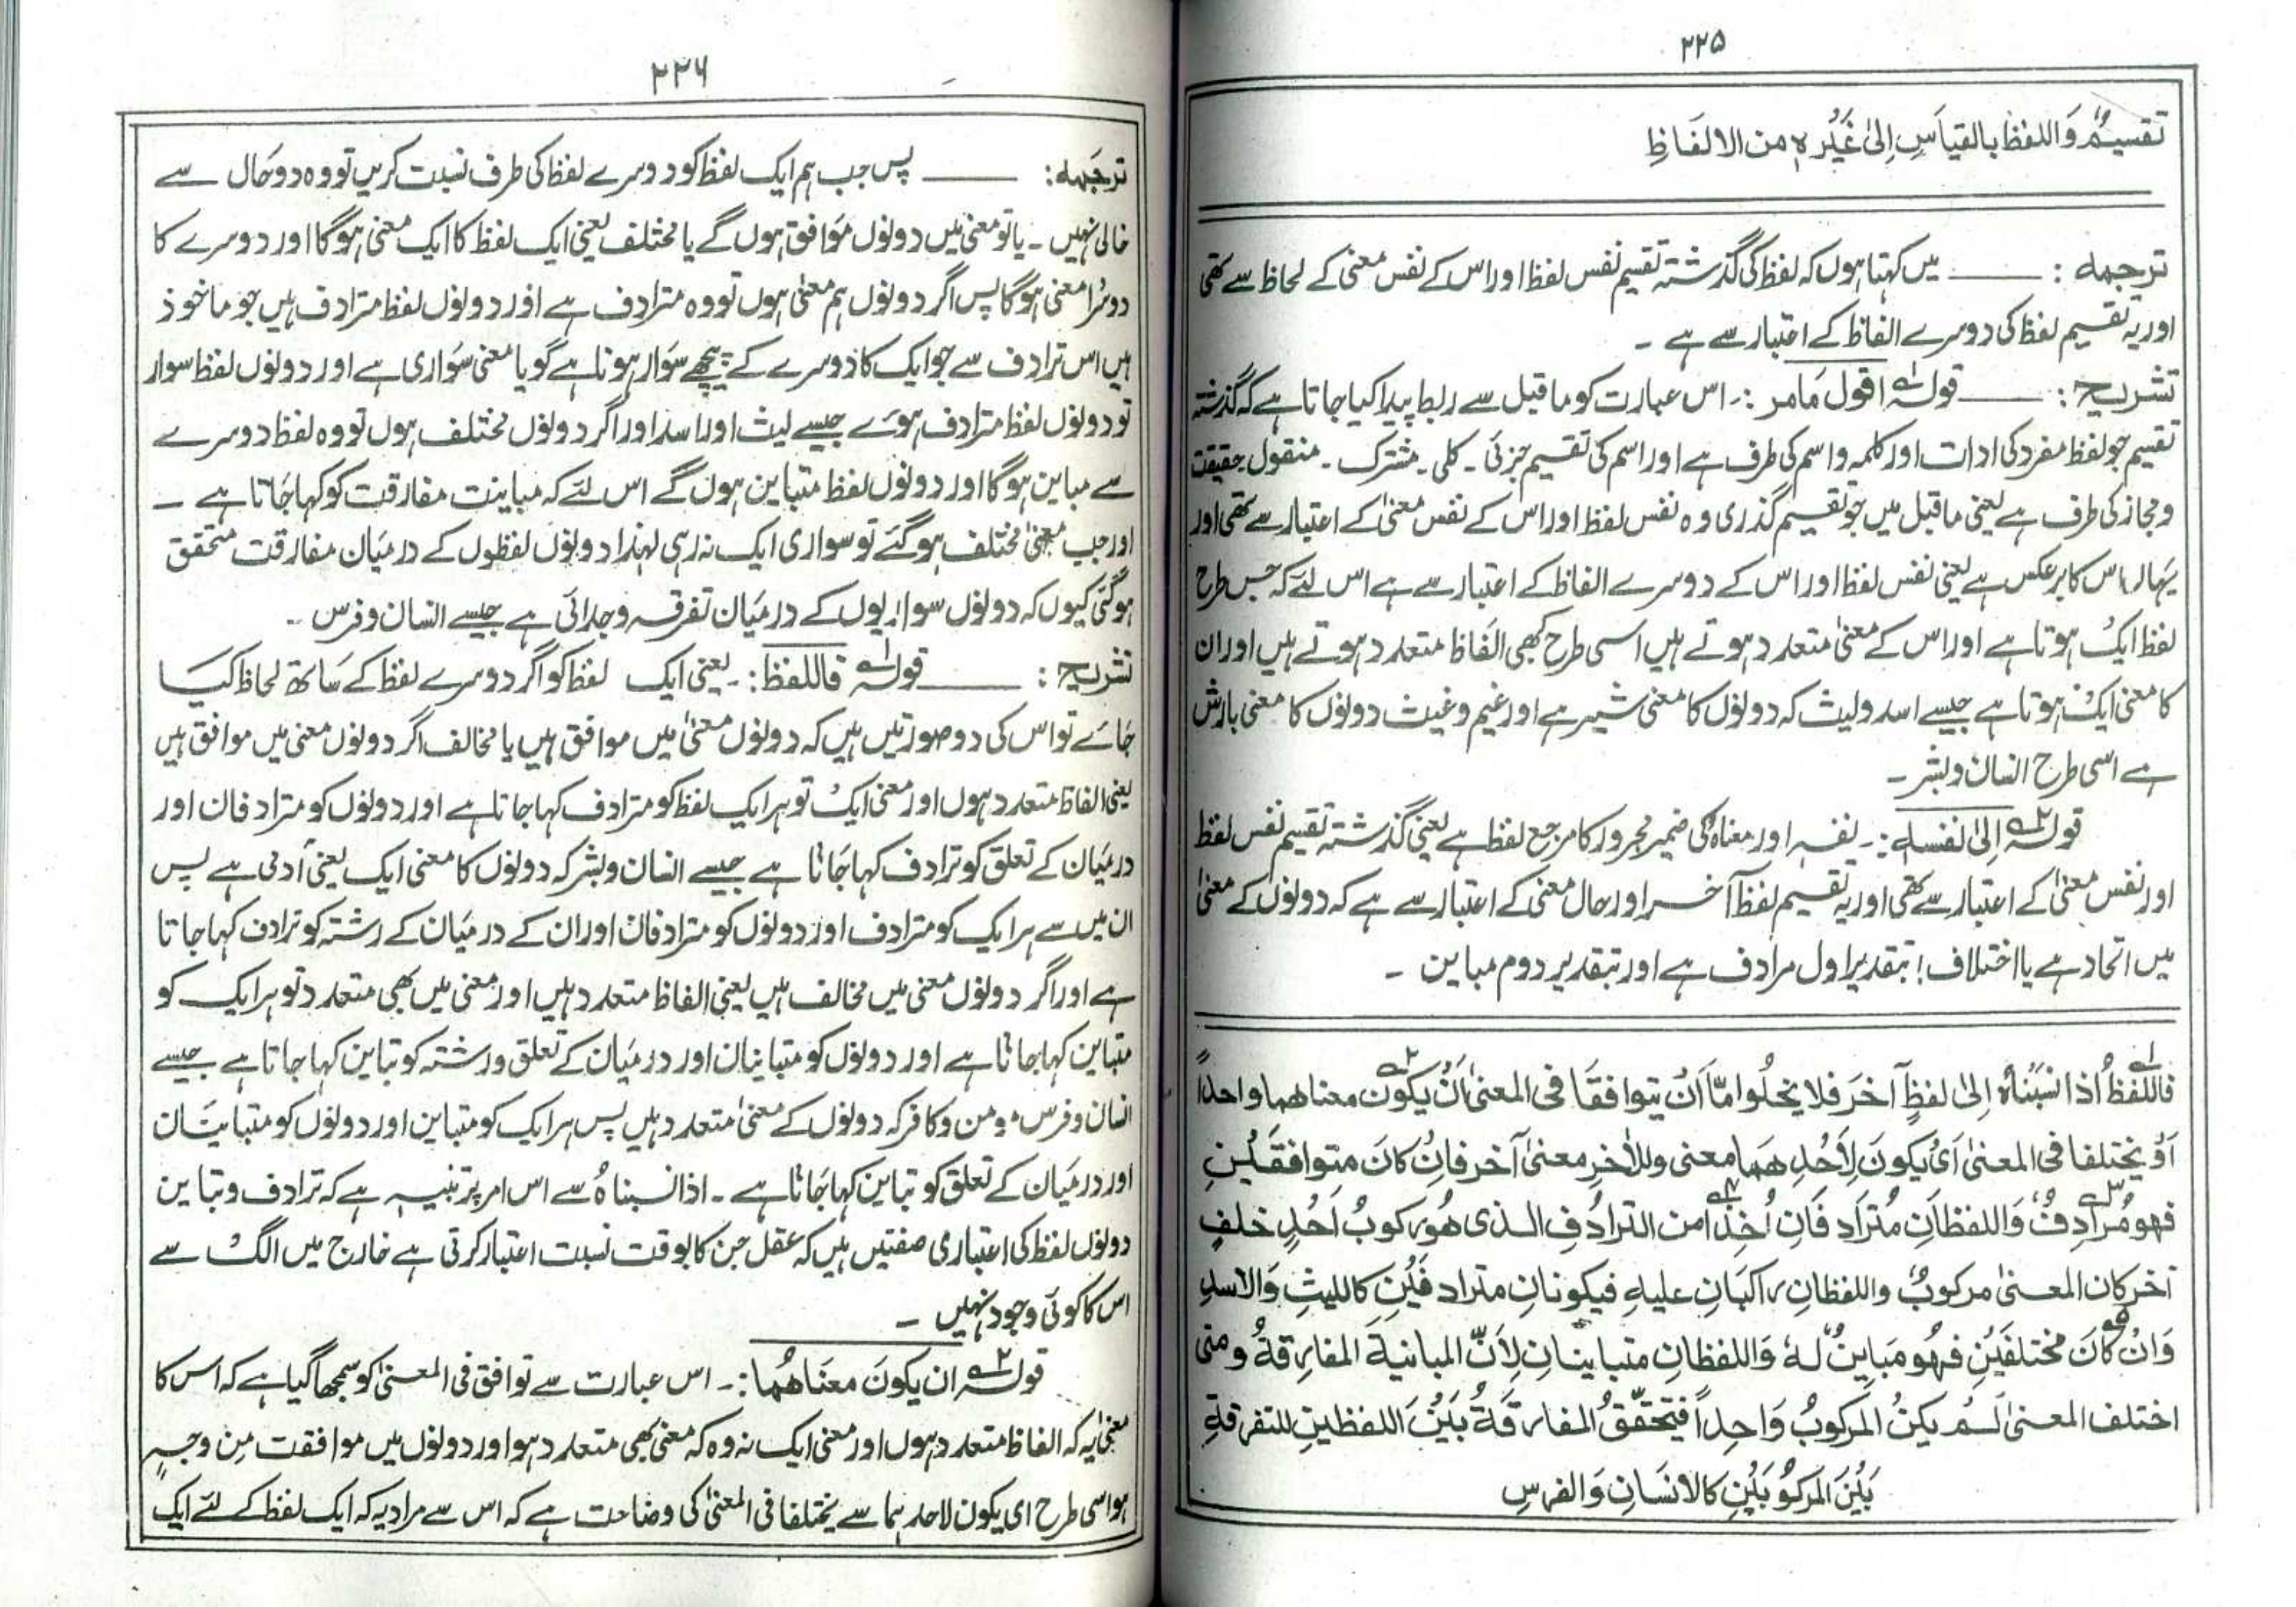 ۲۲۵
تقسیمٌ وَاللفظُ بالقیاَسِ اِلیٰ غَیْرِہٖ من الالفَاظِ
ترجمہ : ــــــ میں کہتا ہوں کہ لفظ کی گذشتہ تقسیم نفس لفظ اور اس کے نفس معنیٰ کے لحاظ سے تھی
اور یہ تقسیم لفظ کی دوسرے الفاظ کے اعتبار سے ہے ۔
تشریح : ــــــ قولہ اقول مَامر :۔ اس عبارت کو ماقبل سے ربط پیدا کیا جاتا ہے کہ گذشتہ
تقسیم جو لفظ مفرد کی ادات اور کلمہ و اسم کی طرف ہے اور اسم کی تقسیم جزئی ۔ کلی ۔ مشترک ۔ منقول حقیقت
ومجاز کی طرف ہے یعنی ماقبل میں جو تقسیم گذری وہ نفس لفظ اور اس کے نفس معنیٰ کے اعتبار سے تھی اور
یہاں اس کا برعکس ہے یعنی نفس لفظ اور اس کے دوسرے الفاظ کے اعتبار سے ہے اس لئے کہ جس طرح
لفظ ایک ہوتا ہے اور اس کے معنیٰ متعدد ہوتے ہیں اسی طرح کبھی الفاظ متعدد ہوتے ہیں اور ان
کا معنیٰ ایک ہوتا ہے جیسے اسد ولیث کہ دونوں کا معنی شیر ہے اور غیم وغیث دونوں کا معنی بارش
ہے اسی طرح انسان وبشر ۔
قولہ اِلیٰ نفسہٖ :۔ نفسہ اور معناہ کی ضمیر مجرور کا مرجع لفظ ہے یعنی گذشتہ تقسیم نفس لفظ
اور نفس معنیٰ کے اعتبار سے تھی اور یہ تقسیم لفظ آخر اور حال معنی کے اعتبار سے ہے کہ دونوں کے معنیٰ
میں اتحاد ہے یا اختلاف؛ بتقدیر اول مرادف ہے اور بتقدیر دوم مباین ۔
فاللفظُ اذا نسَبْنَاہُ اِلیٰ لفظٍ آخرَ فلا یخلُوا مّا اَنْ یتوافقَا فی المعنیٰ اَنْ یکوْن معناھما واحداً
اَوْ یختلفا فی المعنیٰ اَیْ یکونَ لِاَحَدِھِمَا معنی وللآخرِ معنیٰ آخر فاِنْ کانَ متوافقَیْنِ
فھو مُرَادِفٌ وَاللفظانِ مُترَادِفَانِ اُخِذَا من الترادُفِ الذی ھُوَ رکوبُ اَحَدٍ خلفَ
آخر کان المعنیٰ مرکوبٌ واللفظانِ راکبَانِ علیہِ فیکونانِ مترادفَیْنِ کاللیثِ وَالاسدِ
وَانْ کَانَ مختلفَیْنِ فھُو مَباینٌ لہٗ وَاللفظانِ متباینانِ لِاَنَّ المباینۃَ المفارقۃُ ومتی
اختلف المعنیٰ لَمْ یکنُ المرکوبُ وَاحداً فیتحقّقُ المفارقۃُ بَیْنَ اللفظینِ للتفرقۃِ
بَیْنَ المرکُوبَیْنِ کالانسَانِ وَالفرسِ
۲۲۶
ترجَمہ : ــــــ پس جب ہم ایک لفظ کو دوسرے لفظ کی طرف نسبت کریں تو وہ دو حَال سے
خالی نہیں ۔ یا تو معنیٰ میں دونوں مَوافق ہوں گے یا مختلف یعنی ایک لفظ کا ایک معنیٰ ہوگا اور دوسرے کا
دوسرا معنیٰ ہوگا پس اگر دونوں ہم معنیٰ ہوں تو وہ مترادف ہے اور دونوں لفظ مترادف ہیں جو ماخوذ
ہیں اس ترادف سے جو ایک کا دوسرے کے پیچھے سَوار ہونا ہے گویا معنی سَواری ہے اور دونوں لفظ سوار
تو دونوں لفظ مترادف ہوئے جیسے لیث اور اسد اور اگر دونوں مختلف ہوں تو وہ لفظ دوسرے
سے مباین ہوگا اور دونوں لفظ متباین ہوں گے اس لئے کہ مباینت مفارقت کو کہا جَاتا ہے ۔
اور جب معنیٰ مختلف ہوگئے تو سواری ایک نہ رہی لہٰذا دونوں لفظوں کے درمیَان مفارقت متحقق
ہوگئی کیوں کہ دونوں سواریوں کے درمیَان تفرقہ وجدائی ہے جیسے انسان وفرس ۔
تشریح : ــــــ قولہ فاللفظ :۔ یعنی ایک لفظ کو اگر دوسرے لفظ کے سَاتھ لحاظ کیا
جَائے تو اس کی دو صورتیں ہیں کہ دونوں معنیٰ میں موافق ہیں یا مخالف اگر دونوں معنیٰ میں موافق ہیں
یعنی الفاظ متعدد ہوں اور معنیٰ ایک تو ہر ایک لفظ کو مترادف کہا جاتا ہے اور دونوں کو مترادفان اور
درمیَان کے تعلق کو ترادف کہا جَاتا ہے جیسے انسان وبشر کہ دونوں کا معنیٰ ایک یعنی آدمی ہے پس
ان میں سے ہر ایک کو مترادف اور دونوں کو مترادفان اور ان کے درمیَان کے رشتہ کو ترادف کہا جاتا
ہے اور اگر دونوں معنیٰ میں مخالف ہیں یعنی الفاظ متعدد ہیں اور معنیٰ میں بھی متعدد تو ہر ایک کو
متباین کہا جاتا ہے اور دونوں کو متباینان اور درمیَان کے تعلق ورشتہ کو تباین کہا جاتا ہے جیسے
انسان وفرس، مومن وکافر کہ دونوں کے معنیٰ متعدد ہیں پس ہر ایک کو متباین اور دونوں کو متباینان
اور درمیَان کے تعلق کو تباین کہا جَاتا ہے ۔ اذا نسبناہُ سے اس امر پر تنبیہ ہے کہ ترادف وتباین
دونوں لفظ کی اعتباری صفتیں ہیں کہ عقل جن کا بوقت نسبت اعتبار کرتی ہے خارج میں الگ سے
اس کا کوئی وجود نہیں ۔
قولہ ان یکونَ معنَاھُما :۔ اس عبارت سے توافق فی المعنیٰ کو سمجھا گیا ہے کہ اس کا
معنیٰ یہ کہ الفاظ متعدد ہوں اور معنیٰ ایک نہ وہ کہ معنیٰ بھی متعدد ہو اور دونوں میں موافقت مِن وجہٍ
ہو اسی طرح ای یکون لاحدہما سے یختلفا فی المعنیٰ کی وضاحت ہے کہ اس سے مراد یہ کہ ایک لفظ کے لئے ایک